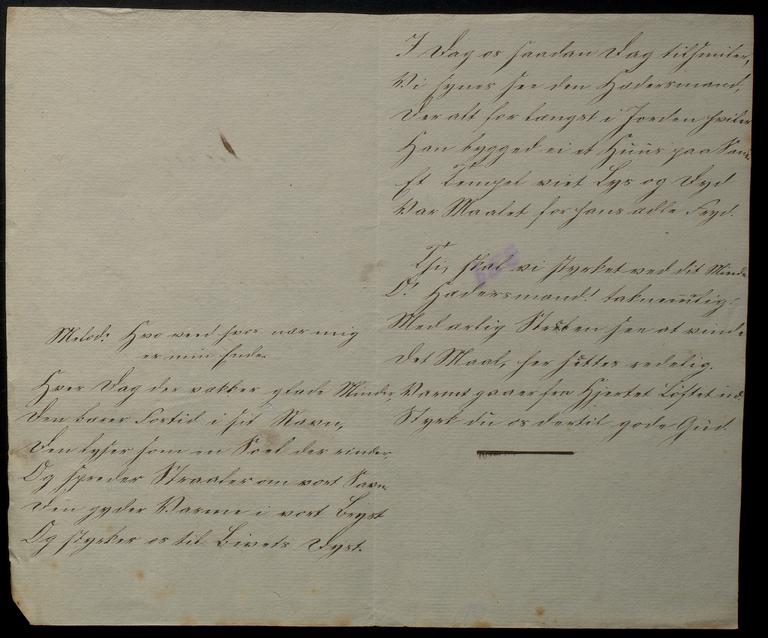 Melod: Hvo veed hvor nær mig
er min Ende.
Hver Dag der vækker glade Minder,
Den bærer Fortid i sit Navn,
Den lyser som en Soel der rinder,
Og spreder Straaler om vort Savn
Den gyder Varme i vort Bryst
Og styrker os til Livets Dyst.
I Dag os saadan Dag tilsmiler,
Vi synes see den Hædersmand,
Der alt for længst i Jorden hviler
Han bygged ei et Huus paa Sand,
Et Tempel viet Lys og Dyd
Var Maalet for hans ædle Fryd.
Thi, skal vi styrket ved dit Minde
O! Hædersmand! taknemlig:
Med ærlig Stræben see at vinde
Det Maal, her sættes redelig.
Varmt gaaer fra Hjertet Løftet ud
Styrk du os dertil gode Gud